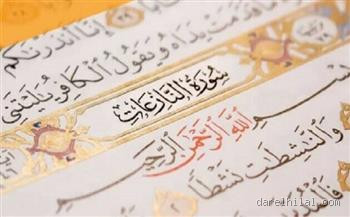 إنا أنذرنكم
ما قدمت يداه ويقول الكافر يليتني
سورة النازعات
بسم الله الرحمن الرحيم
والنشطت نشطا
www.darelhilal.com